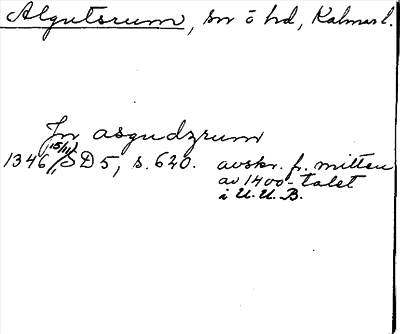 Algutsrum, sn o hd, Kalmar l.
Jn asgudzrum
1346 15/11, SD 5, s. 620. avskr. fr. mitten
av 1400-talet
i U.U.B.